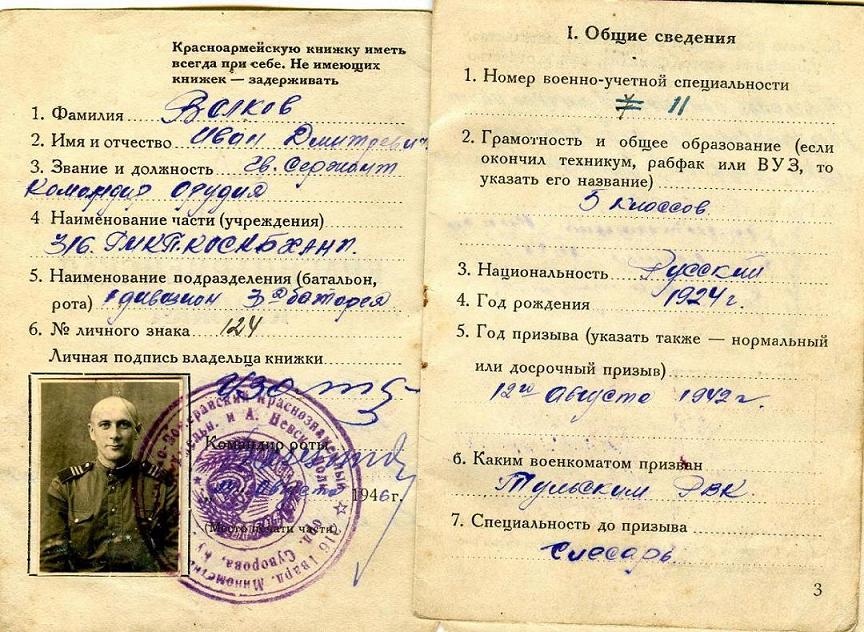 Красноармейскую книжку иметь
всегда при себе. Не имеющих
книжек — задерживать
1. Фамилия Волков
2. Имя и отчество Иван Дмитриевич
3. Звание и должность Гв. Сержант
Командир орудия
4 Наименование части (учреждения)
316.
5. Наименование подразделения (батальон,
рота) 1 дивизион 3я батарея
6. № личного знака 124
Личная подпись владельца книжки
Командир роты
августа 1946 г.
(Место печати части)
316 Гвард. Миномет
I. Общие сведения
1. Номер военно-учетной специальности
№ 11
2. Грамотность и общее образование (если
окончил техникум, рабфак или ВУЗ, то
указать его название)
5 классов.
3. Национальность Русский
4. Год рождения 1924 г.
5. Год призыва (указать также — нормальный
или досрочный призыв)
12го августа 1942 г.
6. Каким военкоматом призван
Тульским РВК.
7. Специальность до призыва
Слесарь
3